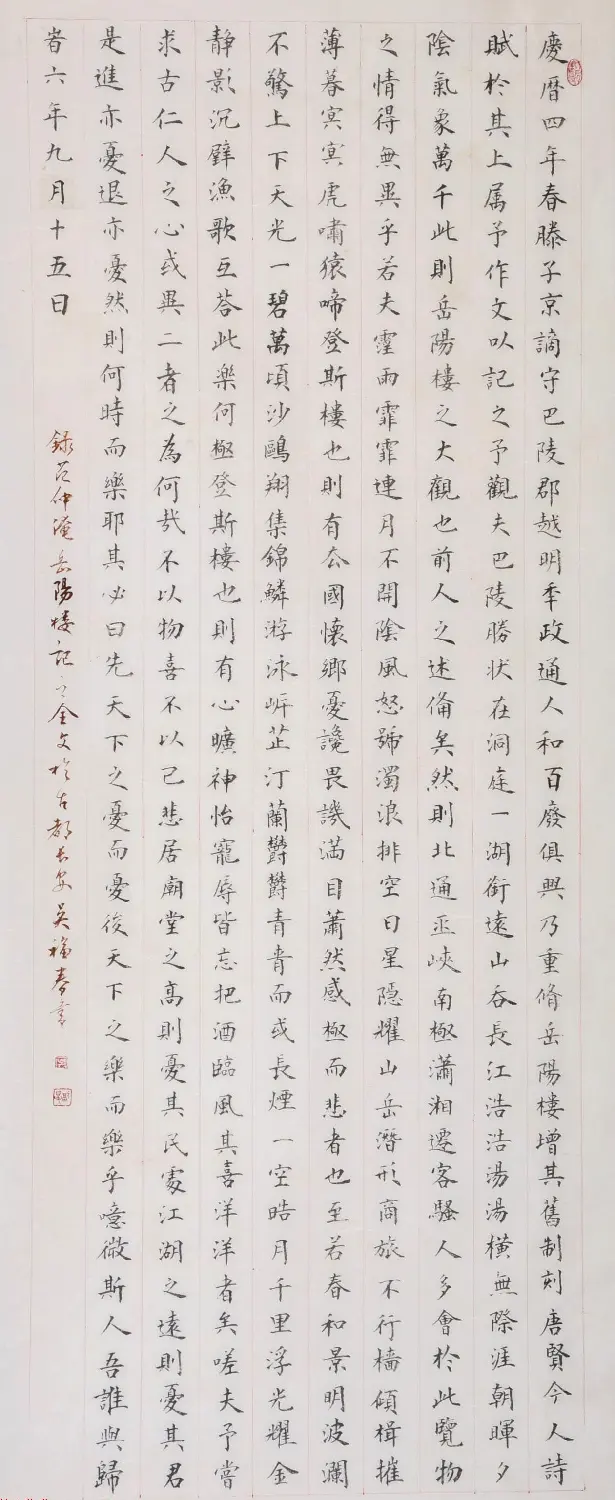 慶暦四年春滕子京謫守巴陵郡越明秊政通人和百廢俱興乃重脩岳陽樓增其舊制刻唐賢今人詩
賦於其上属予作文以記之予觀夫巴陵勝状在洞庭一湖銜遠山吞長江浩浩湯湯橫無際涯朝暉夕
陰氣象萬千此則岳陽樓之大觀也前人之述俻矣然則北通巫峽南極瀟湘遷客騷人多會於此覽物
之情得無異乎若夫霪雨霏霏連月不開陰風怒號濁浪排空日星隱耀山岳潛形商旅不行檣傾楫摧
薄暮冥冥虎嘯猿啼登斯樓也則有去國懷鄉憂讒畏譏滿目蕭然感極而悲者也至若春和景明波瀾
不驚上下天光一碧萬頃沙鷗翔集錦鱗游泳岸芷汀蘭欝欝青青而或長煙一空皓月千里浮光耀金
静影沉璧漁歌互荅此樂何極登斯樓也則有心曠神怡寵辱皆忘把酒臨風其喜洋洋者矣嗟夫予嘗
求古仁人之心或異二者之為何哉不以物喜不以己悲居廟堂之高則憂其民處江湖之遠則憂其君
是進亦憂退亦憂然則何時而樂耶其必曰先天下之憂而憂後天下之樂而樂乎噫微斯人吾誰與歸
旹六年九月十五日
錄范仲淹岳陽樓記之全文於古都長安吳福春書